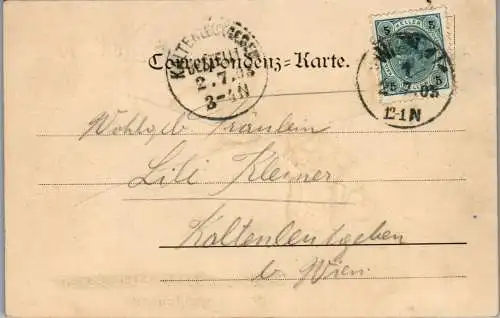 KALTENLEUTGEBEN
BESTELLT
2.7.03
3-4N
Correspondenz=Karte.
5 HELLER 5
5 5
WIEN
2 7 03
12-1N
Wohlgeb Fräulein
Lili Kleiner
Kaltenleutgeben
b. Wien